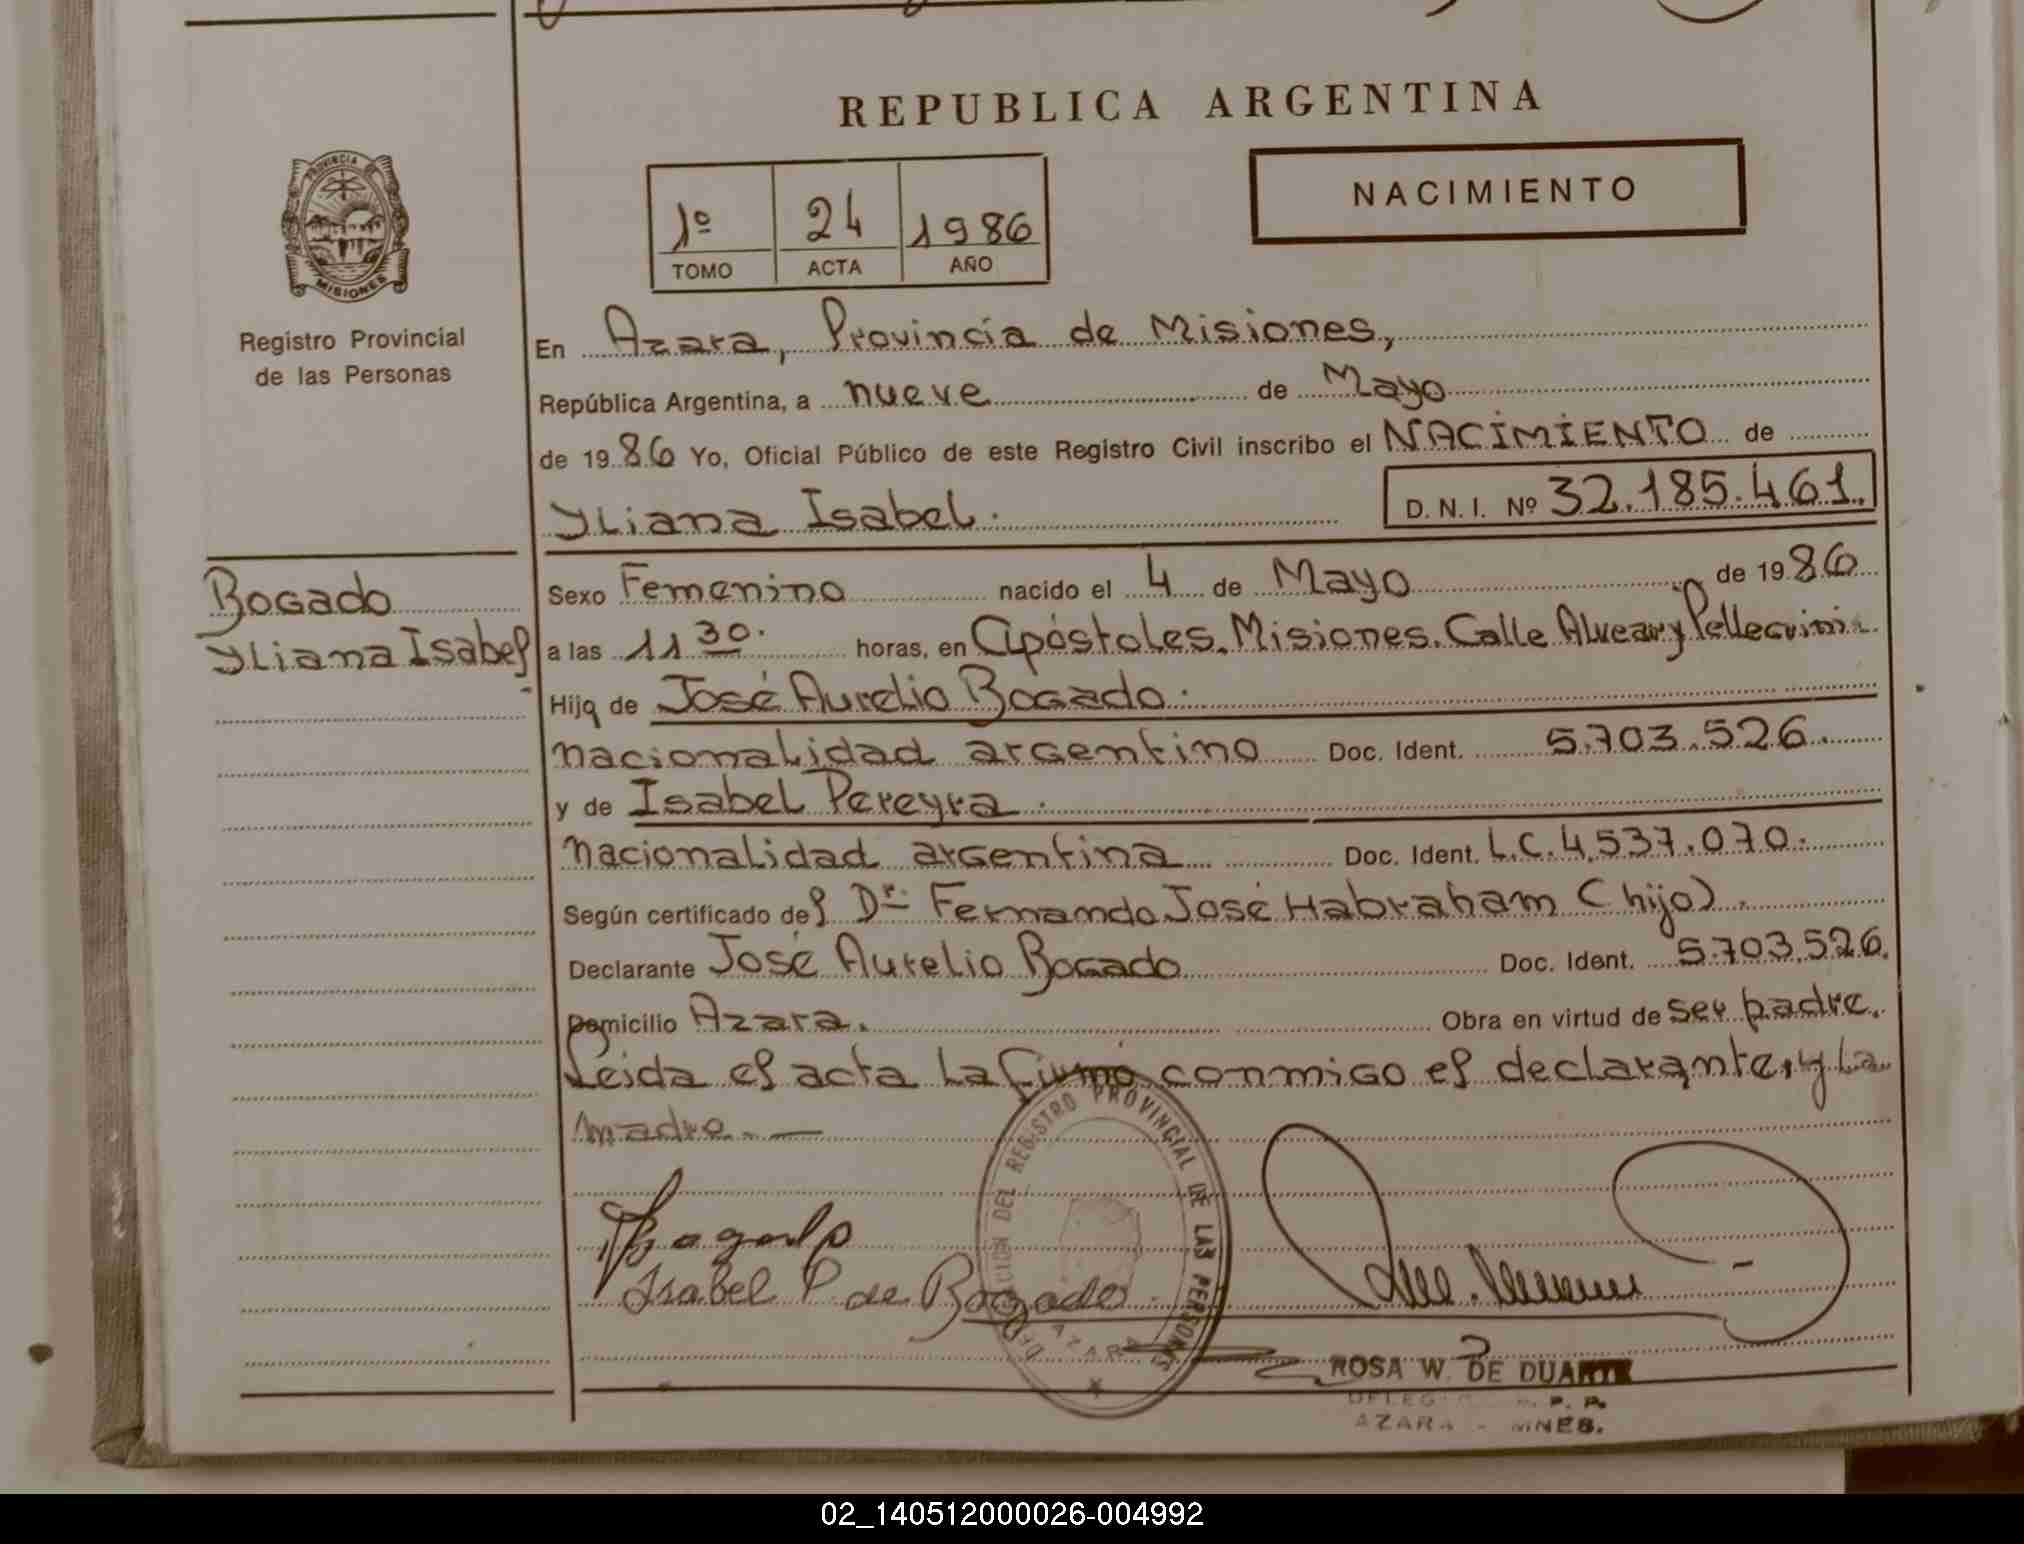 REPUBLICA ARGENTINA
PROVINCIA DE
MISIONES
Registro Provincial
de las Personas
1º 24 1986
TOMO ACTA AÑO
NACIMIENTO
En Azara, Provincia de Misiones,
República Argentina, a nueve de Mayo
de 1986 Yo, Oficial Público de este Registro Civil inscribo el NACIMIENTO de
Yliana Isabel. D.N.I. Nº 32.185.461.
Bogado
Yliana Isabel
Sexo Femenino nacido el 4 de Mayo de 1986
a las 11 30. horas, en Apóstoles. Misiones. Calle Alvear y Pellegrini.
Hija de José Aurelio Bogado.
nacionalidad argentino Doc. Ident. 5.703.526.
y de Isabel Pereyra.
nacionalidad argentina Doc. Ident. L.C. 4.537.070.
Según certificado del Dr. Fernando José Habraham (hijo).
Declarante José Aurelio Bogado Doc. Ident. 5.703.526.
Domicilio Azara. Obra en virtud de ser padre.
Leida el acta la firma conmigo el declarante, y la
madre. —
Bogado
Isabel P. de Bogado
DEL REGISTRO PROVINCIAL DE LAS PERSONAS
AZARA
ROSA W. DE DUARTE
AZARA - MNES.
02_140512000026-004992